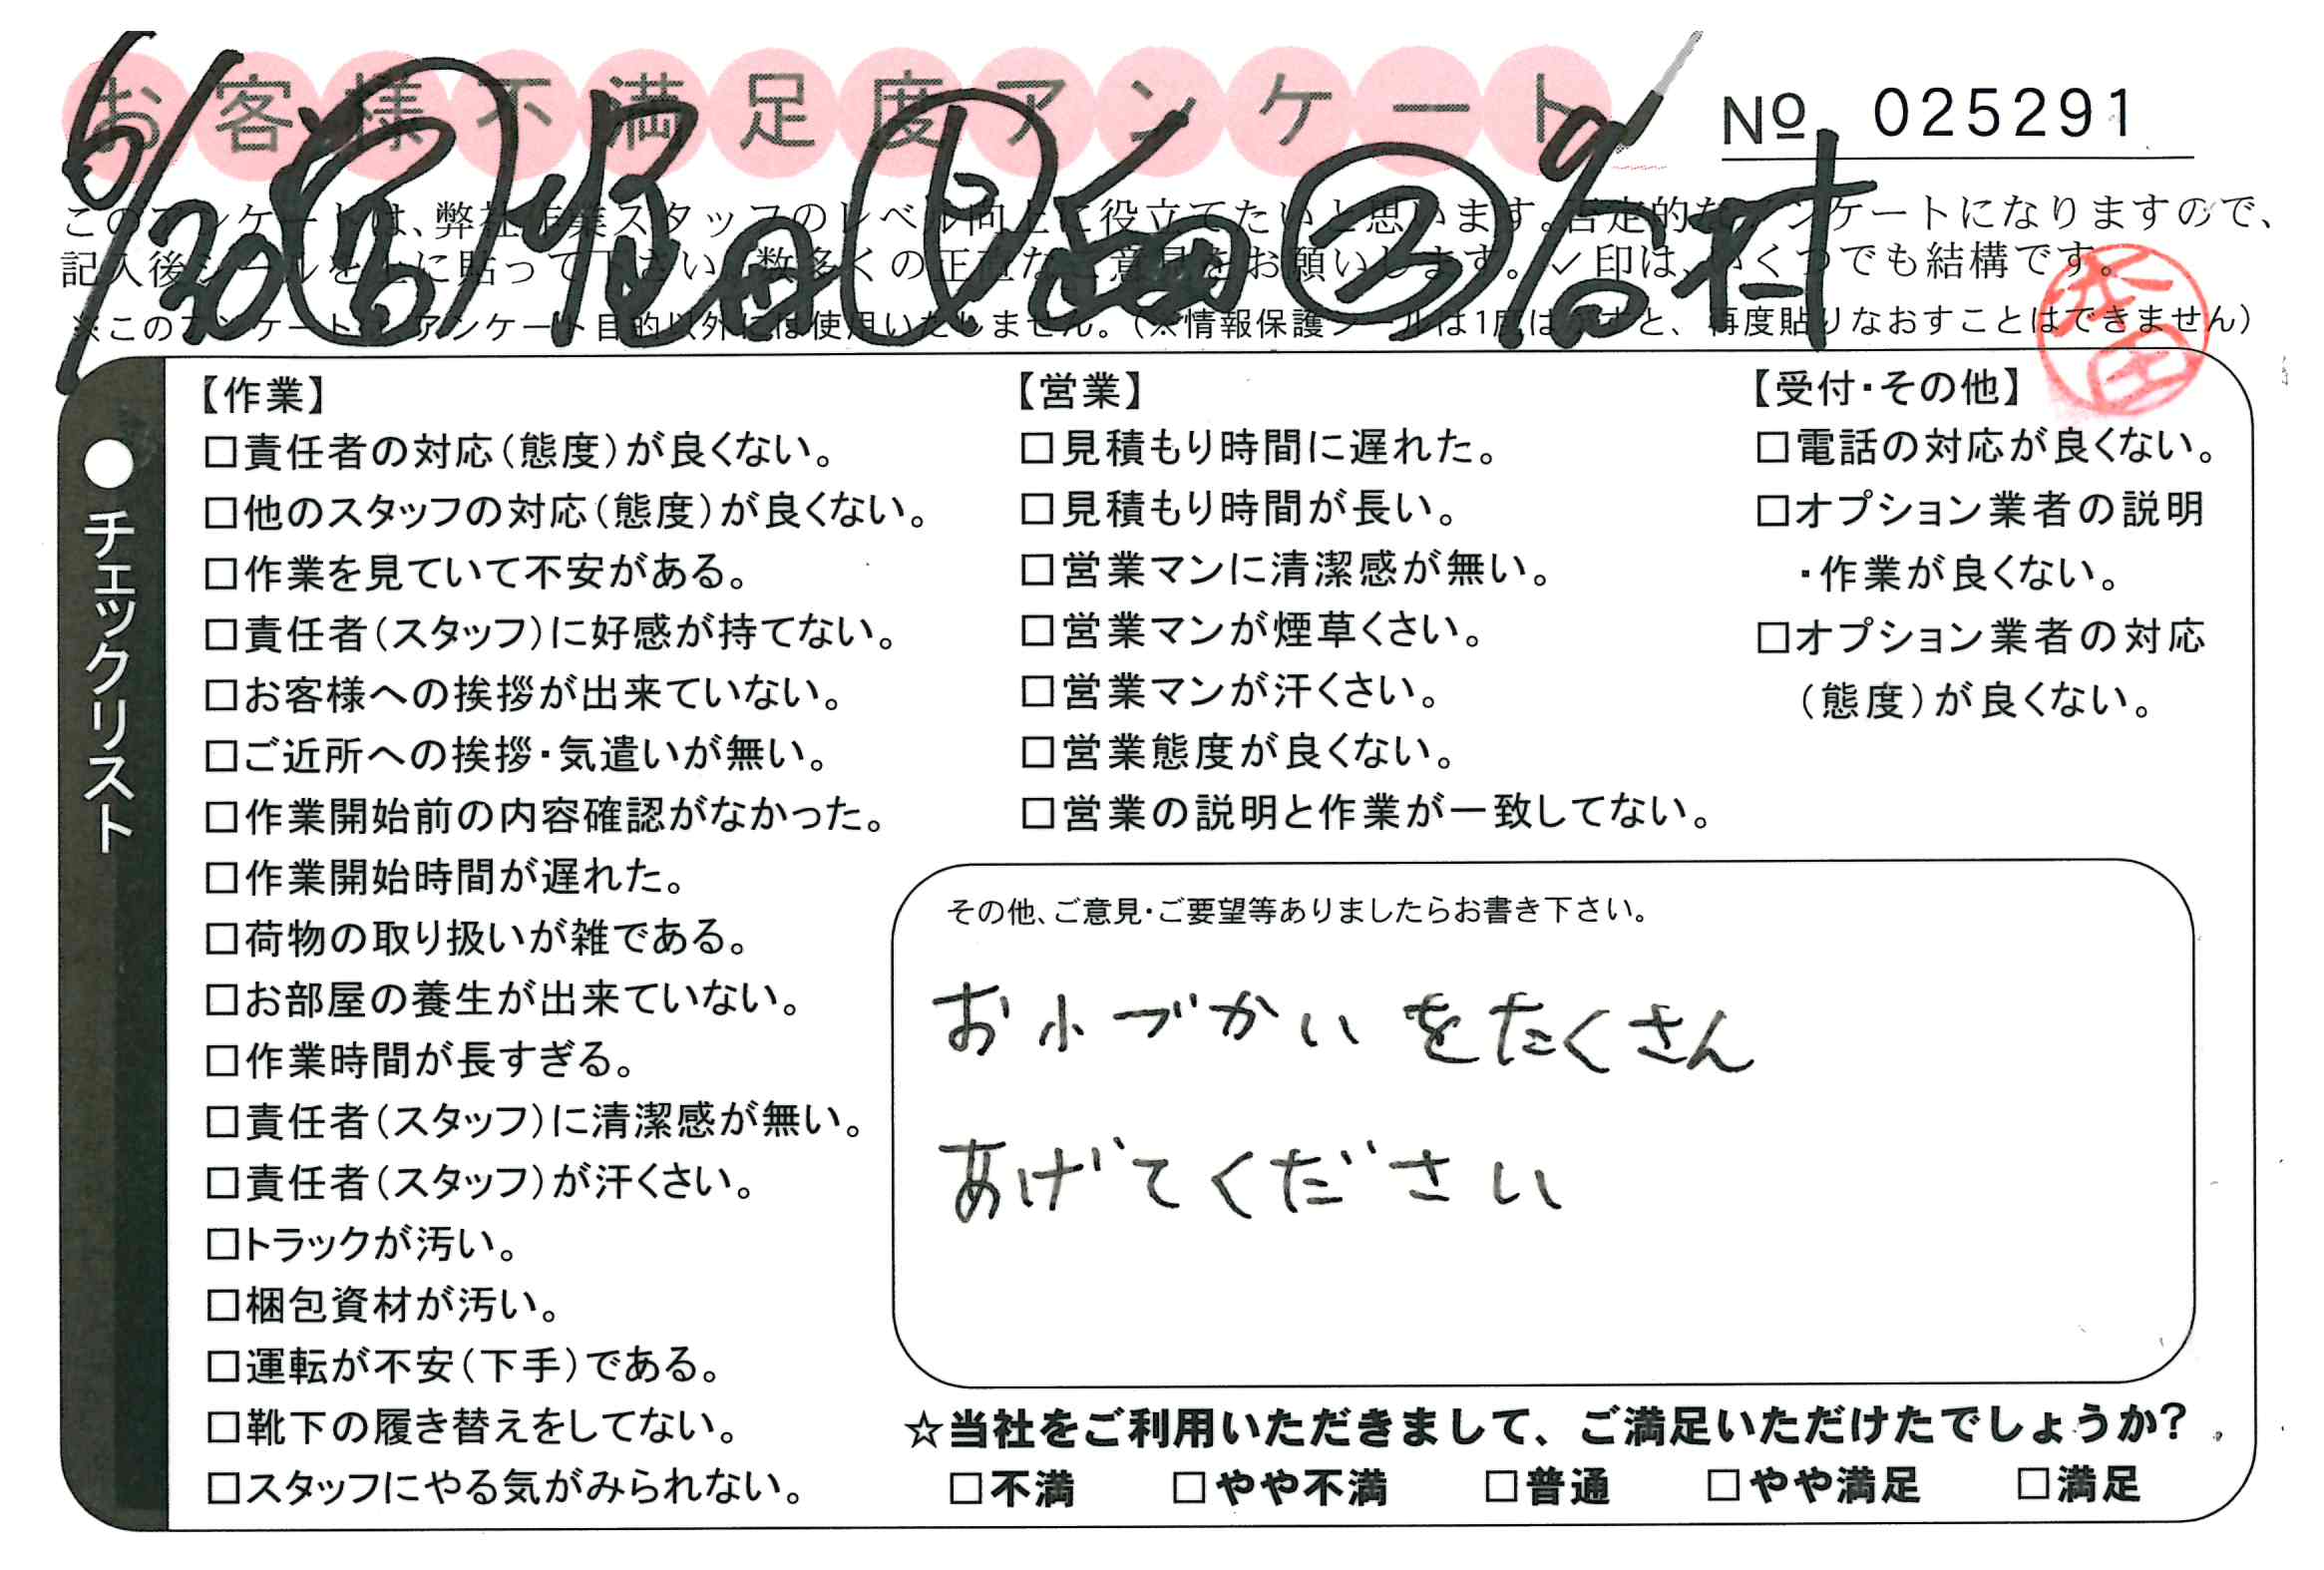 お客様不満足度アンケート
№ 025291
6/30
このアンケートは、弊社作業スタッフのレベル向上に役立てたいと思います。否定的なアンケートになりますので、
記入後シールを上に貼って下さい。数多くの正直なご意見をお願いします。✓印は、いくつでも結構です。
※このアンケートは、アンケート目的以外には使用いたしません。(※情報保護シールは1度はがすと、再度貼りなおすことはできません)
●チェックリスト
【作業】
□責任者の対応(態度)が良くない。
□他のスタッフの対応(態度)が良くない。
□作業を見ていて不安がある。
□責任者(スタッフ)に好感が持てない。
□お客様への挨拶が出来ていない。
□ご近所への挨拶・気遣いが無い。
□作業開始前の内容確認がなかった。
□作業開始時間が遅れた。
□荷物の取り扱いが雑である。
□お部屋の養生が出来ていない。
□作業時間が長すぎる。
□責任者(スタッフ)に清潔感が無い。
□責任者(スタッフ)が汗くさい。
□トラックが汚い。
□梱包資材が汚い。
□運転が不安(下手)である。
□靴下の履き替えをしてない。
□スタッフにやる気がみられない。
【営業】
□見積もり時間に遅れた。
□見積もり時間が長い。
□営業マンに清潔感が無い。
□営業マンが煙草くさい。
□営業マンが汗くさい。
□営業態度が良くない。
□営業の説明と作業が一致してない。
【受付・その他】
□電話の対応が良くない。
□オプション業者の説明
・作業が良くない。
□オプション業者の対応
(態度)が良くない。
その他、ご意見・ご要望等ありましたらお書き下さい。
お小づかいをたくさん
あげてください
☆当社をご利用いただきまして、ご満足いただけたでしょうか?
□不満 □やや不満 □普通 □やや満足 □満足